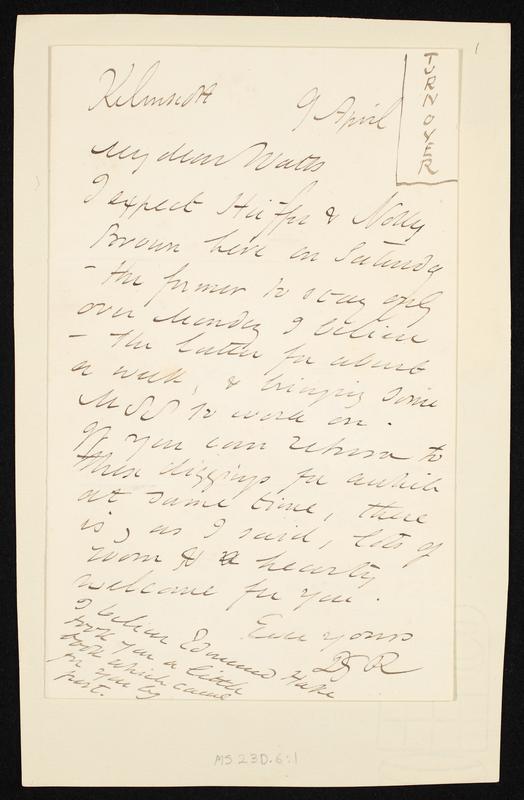 1
TURNOVER
Kelmscott 9 April
My dear Watts
I expect Hüffer & Nolly
Brown here on Saturday
– the former to stay only
over Monday I believe
– the latter for about
a week, & bringing some
MSS to work on.
If you can return to
these diggings for awhile
at same time, there
is, as I said, lots of
room & a hearty
welcome for you.
Ever yours
DGR
I believe Edmund Hake
took you a little
book which came
for you by
post.
MS 23D.6:1